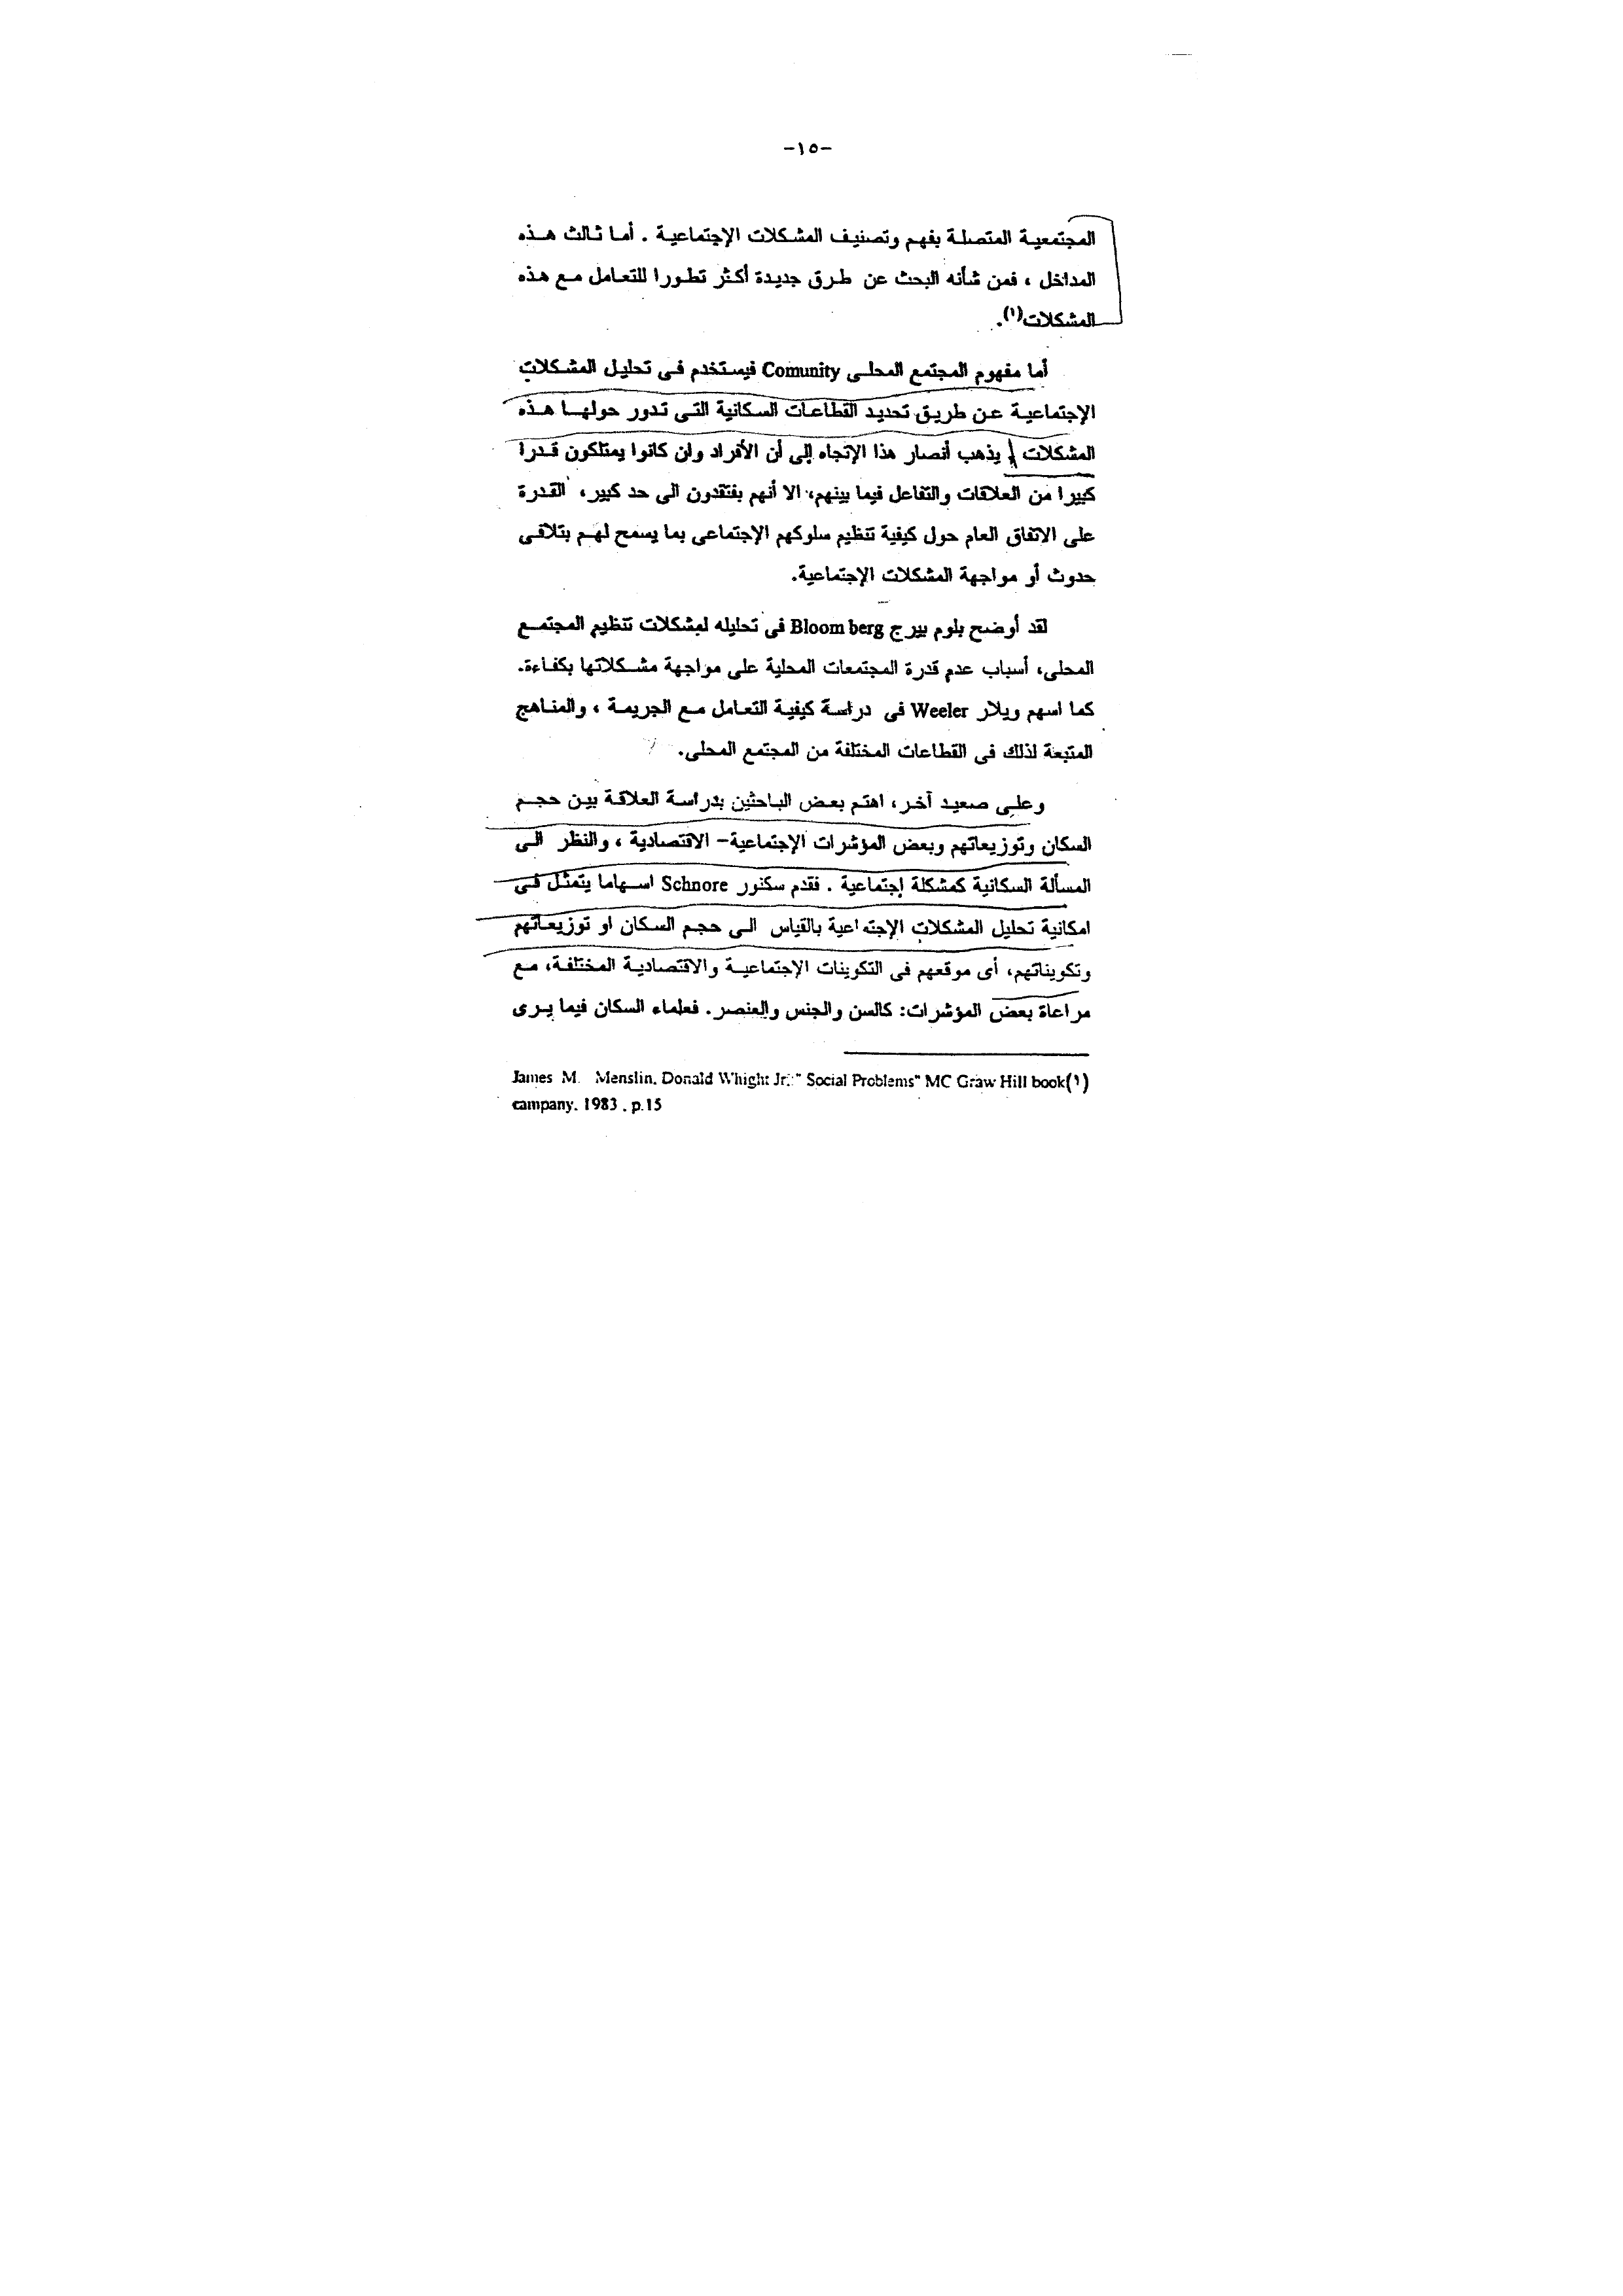 -١٥-
المجتمعية المتصلة بفهم وتصنيف المشكلات الإجتماعية . أما ثالث هذه
المداخل ، فمن شأنه البحث عن طرق جديدة أكثر تطورا للتعامل مع هذه
المشكلات(١).
أما مفهوم المجتمع المحلى Comunity فيستخدم فى تحليل المشكلات
الإجتماعية عن طريق تحديد القطاعات السكانية التى تدور حولها هذه
المشكلات يذهب أنصار هذا الإتجاه إلى أن الأفراد وان كانوا يمتلكون قدرا
كبيرا من العلاقات والتفاعل فيما بينهم، الا أنهم يفتقدون الى حد كبير، القدرة
على الاتفاق العام حول كيفية تنظيم سلوكهم الإجتماعى بما يسمح لهم بتلافى
حدوث أو مواجهة المشكلات الإجتماعية.
لقد أوضح بلوم بيرج Bloom berg فى تحليله لمشكلات تنظيم المجتمع
المحلى، أسباب عدم قدرة المجتمعات المحلية على مواجهة مشكلاتها بكفاءة.
كما اسهم ويلار Weeler فى دراسة كيفية التعامل مع الجريمة ، والمناهج
المتبعة لذلك فى القطاعات المختلفة من المجتمع المحلى.
وعلى صعيد آخر، اهتم بعض الباحثين بدراسة العلاقة بين حجم
السكان وتوزيعاتهم وبعض المؤشرات الإجتماعية- الاقتصادية ، والنظر الى
المسألة السكانية كمشكلة إجتماعية . فقدم سكنور Schnore اسهاما يتمثل فى
امكانية تحليل المشكلات الإجتماعية بالقياس الى حجم السكان او توزيعاتهم
وتكويناتهم، أى موقعهم فى التكوينات الإجتماعية والاقتصادية المختلفة، مع
مراعاة بعض المؤشرات: كالسن والجنس والعنصر. فعلماء السكان فيما يرى
James M. Menslin, Donald Whight Jr.:" Social Problems" MC Graw Hill book(١)
campany. 1983 . p.15